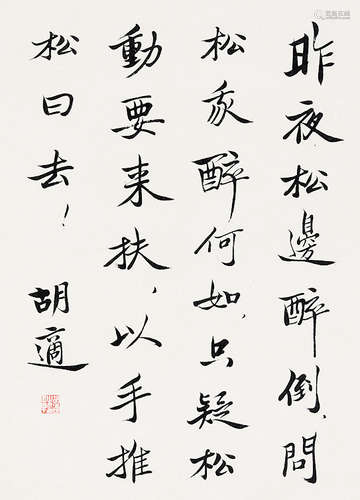 昨夜松邊醉倒，問
松我醉何如，只疑松
動要来扶，以手推
松曰去！
胡適